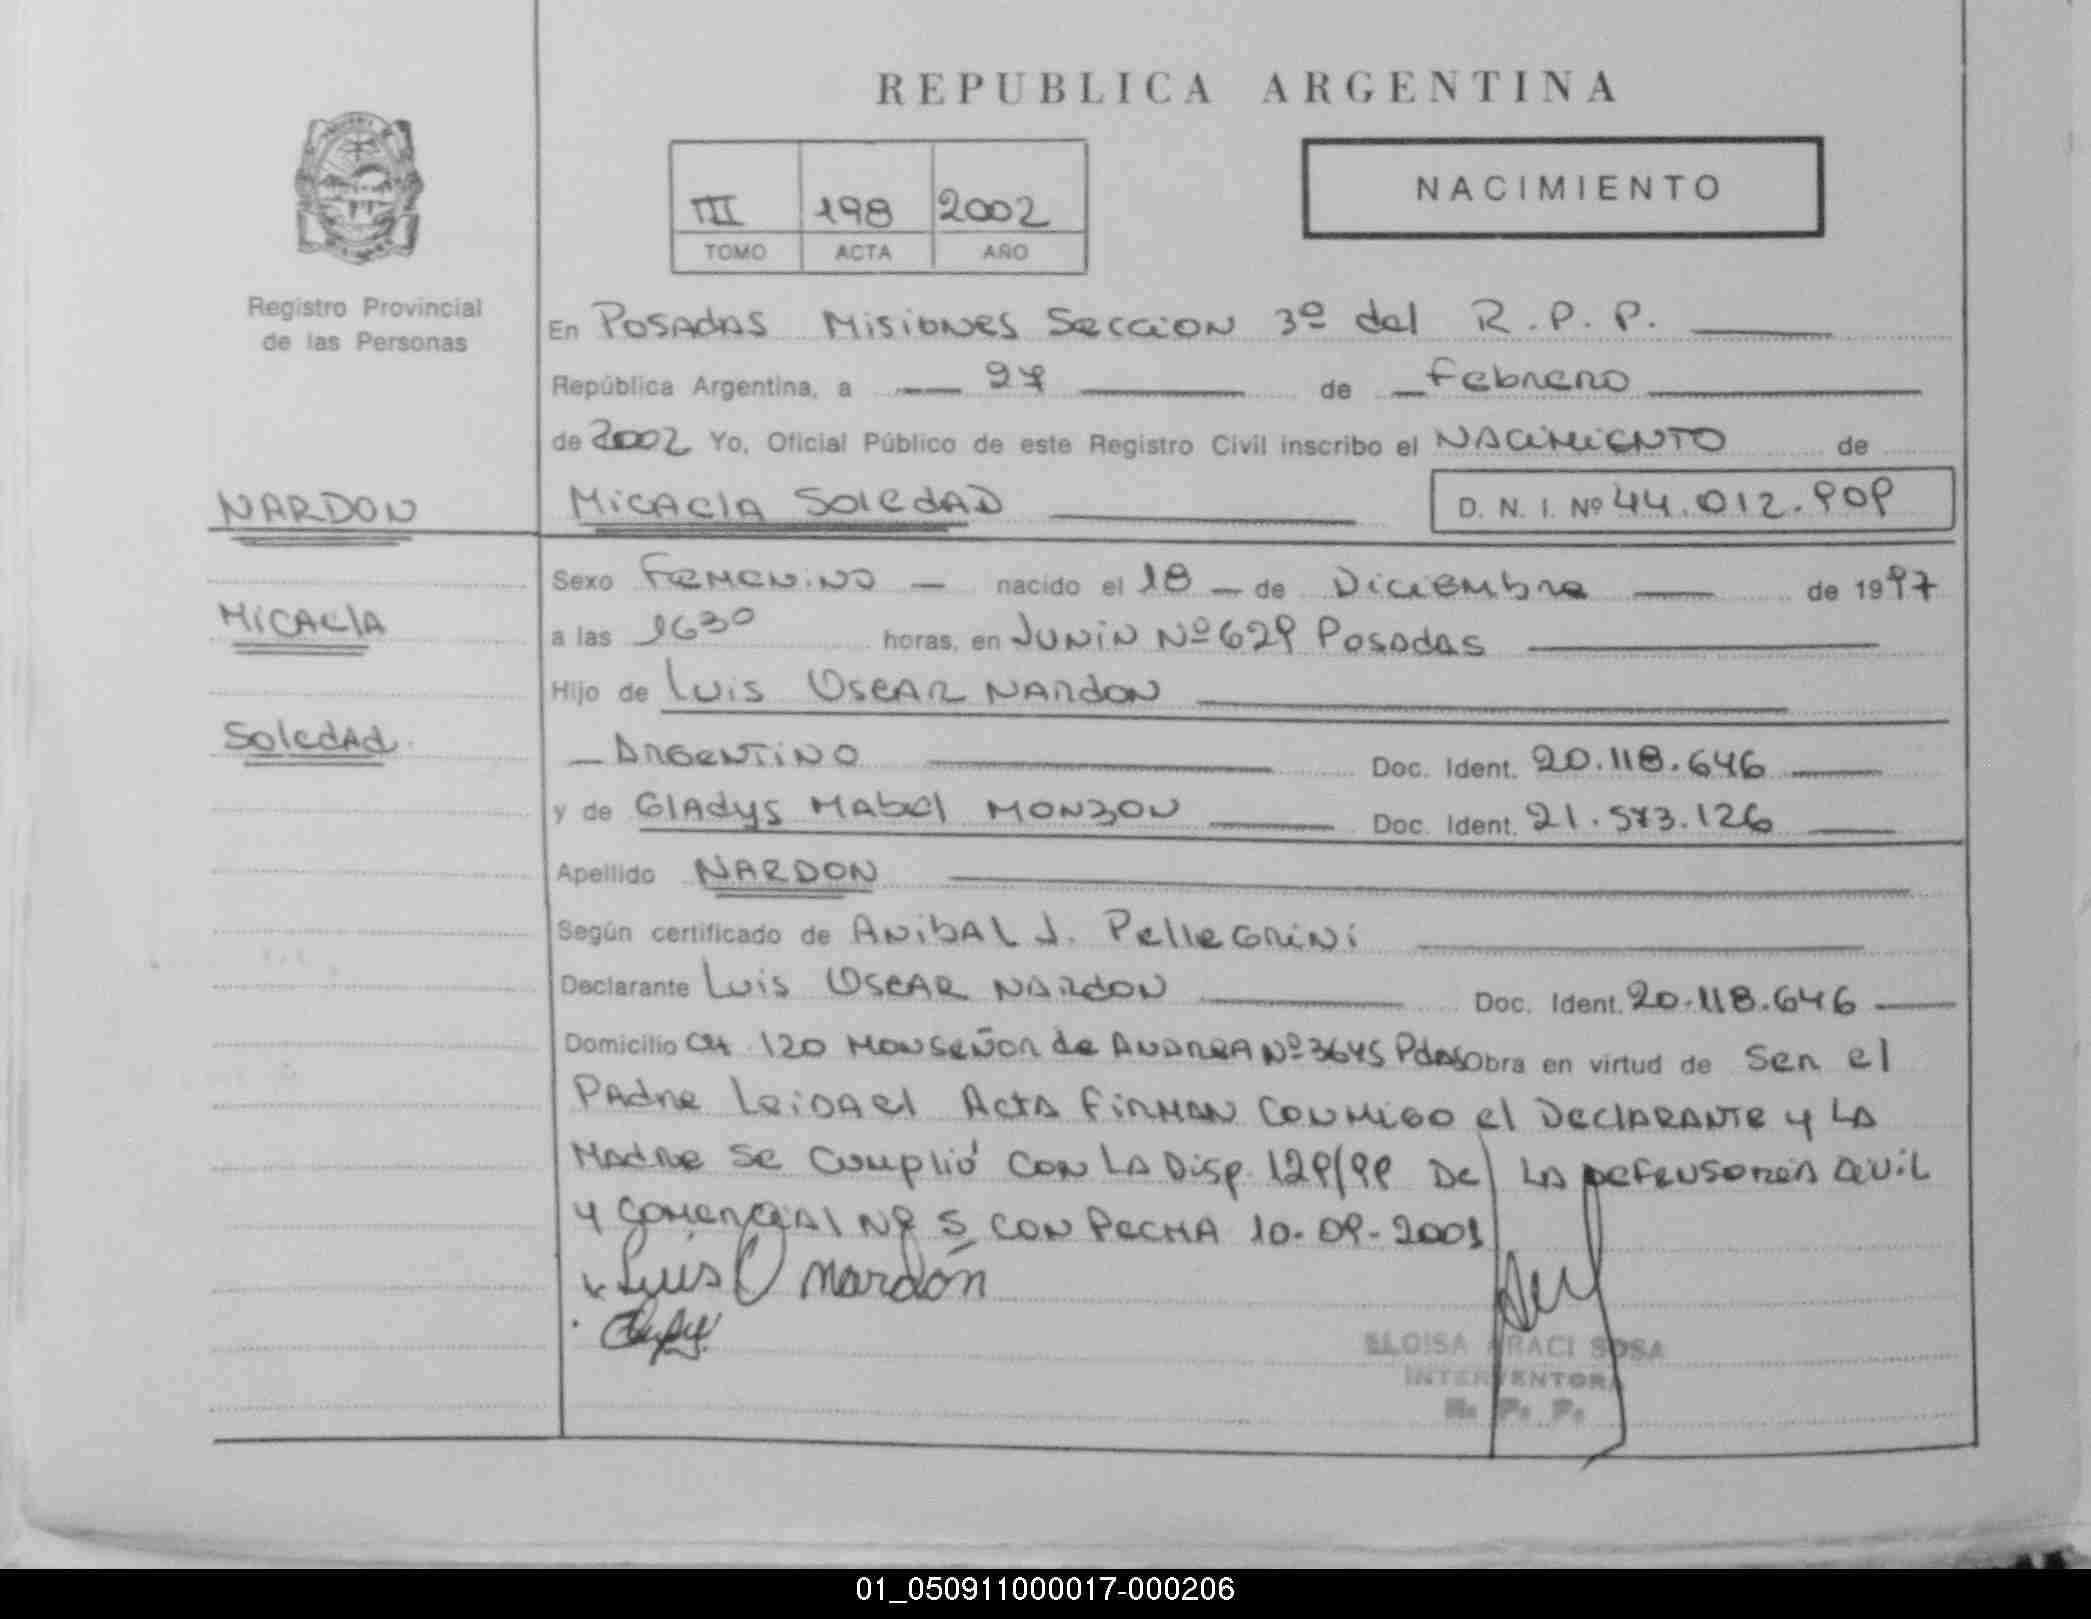 REPUBLICA ARGENTINA
III 198 2002
TOMO ACTA AÑO
NACIMIENTO
Registro Provincial
de las Personas
En Posadas Misiones Seccion 3º del R.P.P.
República Argentina, a 27 de febrero
de 2002 Yo, Oficial Público de este Registro Civil inscribo el NACIMIENTO de
NARDON
Micaela Soledad D. N. I. Nº 44.012.909
Sexo Femenino nacido el 18 de Diciembre de 1997
Micaela
a las 1630 horas, en Junin Nº 629 Posadas
Hijo de Luis Oscar Nardon
Soledad
Argentino Doc. Ident. 20.118.646
y de Gladys Mabel Monzon Doc. Ident. 21.573.126
Apellido NARDON
Según certificado de Anibal J. Pellegrini
Declarante Luis Oscar Nardon Doc. Ident. 20.118.646
Domicilio CH 120 Monseñor de Andrea Nº 3645 Pdas Obra en virtud de ser el
Padre Leida el Acta firman conmigo el Declarante y la
Madre se cumplió con la Disp. 129/99 De la Defensoria Civil
y Comercial Nº 5 con fecha 10-09-2001
Luis O Nardón
ELOISA ARACI SOSA
INTERVENTORA
R. P. P.
01_050911000017-000206